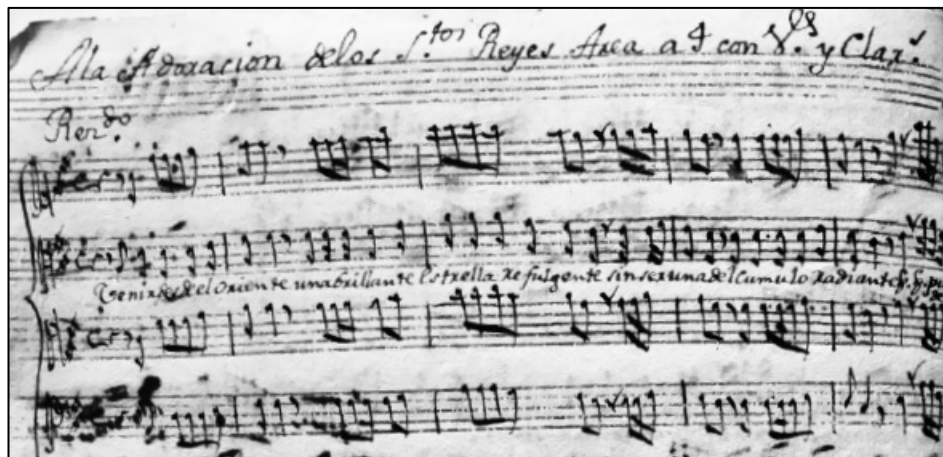 Ala Adoracion delos S.tos Reyes Area a 4 con V.s y Clar.s
Rer.do
Venir desde el Oriente una brillante Estrella Refulgente sin ser una del Cumulo Radiante